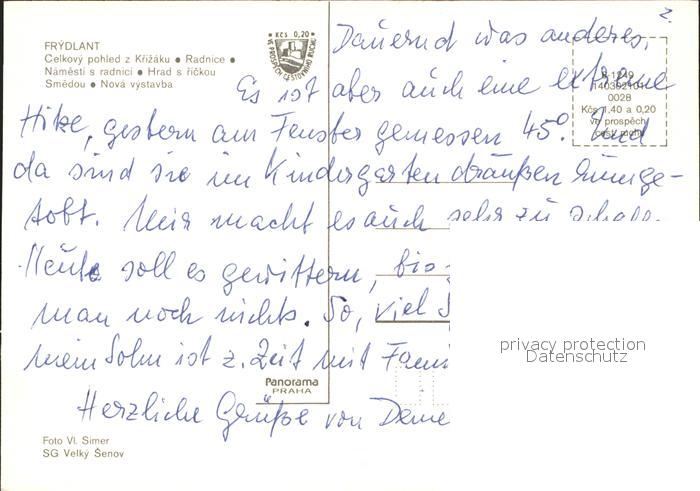 2.
Dauernd was anderes.
FRÝDLANT
Celkový pohled z Křížáku • Radnice •
Náměstí s radnicí • Hrad s říčkou
Smědou • Nová výstavba
Kčs 0,20
VE PROSPĚCH CESTOVNÍHO RUCHU
0028
Kčs 1,40 a 0,20
ve prospěch
Es ist aber auch eine extreme
Hitze, gestern am Fenster gemessen 45°. Und
da sind sie im Kindergarten draußen rumge-
tobt. Mir macht es auch sehr zu schaff-
Heute soll es gewittern, bis
man noch nichts. So, viel
mein Sohn ist z. Zeit mit Fam
Herzliche Grüße von Deine
privacy protection
Datenschutz
Panorama
PRAHA
Foto Vl. Simer
SG Velký Šenov